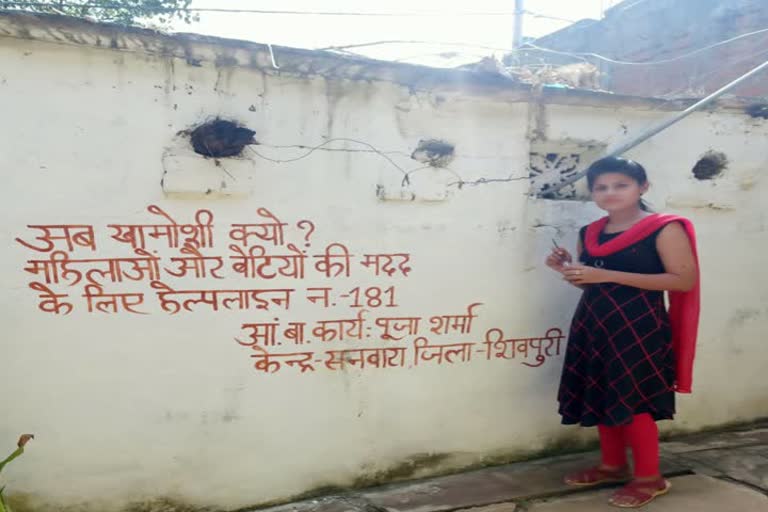 अब खामोशी क्यो ?
महिलाओं और बेटियों की मदद
के लिए हेल्पलाइन न.-181
आं.बा.कार्य: पूजा शर्मा
केन्द्र-सनवारा,जिला-शिवपुरी